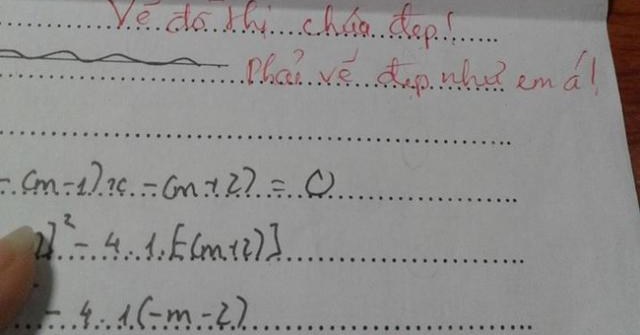 Vẽ đồ thị chưa đẹp!
Phải vẽ đẹp như em á!
- (m-1)x - (m+2) = 0
]² - 4.1.[-(m+2)]
- 4.1(-m-2)